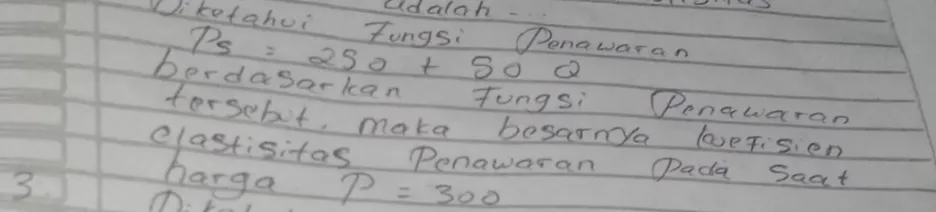 adalah ...
Diketahui Fungsi Penawaran
Ps = 250 + 50 Q
berdasarkan Fungsi Penawaran
tersebut, maka besarnya koefisien
elastisitas Penawaran pada saat
3. harga P = 300